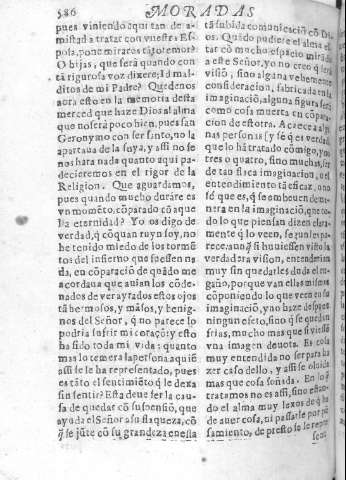 586
MORADAS
pues viniendo aqui tan de a-
mistad a tratar con vuestra Es
posa, pone miraros tã to temor?
O hijas, que será quando con
tã rigurosa voz dixere; Id mal-
ditos de mi Padre? Quedenos
aora esto en la memoria desta
merced que haze Dios al alma
que no será poco bien, pues san
Geronymo con ser santo, no la
apartaua de la suya, y assi no se
nos hara nada quanto aqui pa-
decieremos en el rigor de la
Religion. Que aguardamos,
pues quando mucho duráre es
vn momẽto, cõparado cõ aque
lla eternidad? Yo os digo de
verdad, q̃ cõ quan ruyn soy, no
he tenido miedo de los tormẽ
tos del infierno que fuessen na
da, en cõparaciõ de quãdo me
acordaua que auian los cõde-
nados de ver ayrados estos ojos
tã hermosos, y mãsos, y benig-
nos del Señor, q̃ no parece lo
podria sufrir mi coraçõ; y esto
ha sido toda mi vida: quanto
mas lo temerà la persona a quiẽ
assi se le ha representado, pues
es tãto el sentimiẽto q̃ le dexa
sin sentir? Esta deue ser la cau-
sa de quedar cõ suspensiõ, que
ayuda el Señor a su flaqueza, cõ
q̃ se jũte cõ su grandeza en esta
tã subida comunicaciõ cõ Dios.
Quãdo pudiere el alma es-
tar cõ mucho espacio mirãdo
a este Señor, yo no creo q̃ será
visiõ, sino alguna vehemente
consideracion, fabricada en la
imaginaciõ, alguna figura será
como cosa muerta en cõpara-
cion de estotra. Acaece a algu
nas personas (y sé q̃ es verdad,
que lo hã tratado cõmigo, y no
tres o quatro, sino muchas, ser
de tan flaca imaginacion, o el
entendimiento tã eficaz, o no
sé que es, q̃ se embeuen de ma-
nera en la imaginaciõ, que to-
do lo que piensan dizen clara-
mente q̃ lo veen, segun les pa-
rece, aunq̃ si huuiessen visto la
verdadera vision, entenderian
muy sin quedarles duda el en-
gaño, porque van ellas mismas
cõponiendo lo que veen en su
imaginaciõ, y no haze despues
ningun efeto, sino q̃ se quedan
frias, mucho mas q̃ si viessẽ
vna imagen deuota. Es cosa
muy entendida no ser para ha
zer caso dello, y assi se oluida
mas que cosa soñada. En lo q̃
tratamos no es assi, sino estan-
do el alma muy lexos de q̃ ha
de auer cosa, ni passarle por pẽ
samiento, de presto se le repre